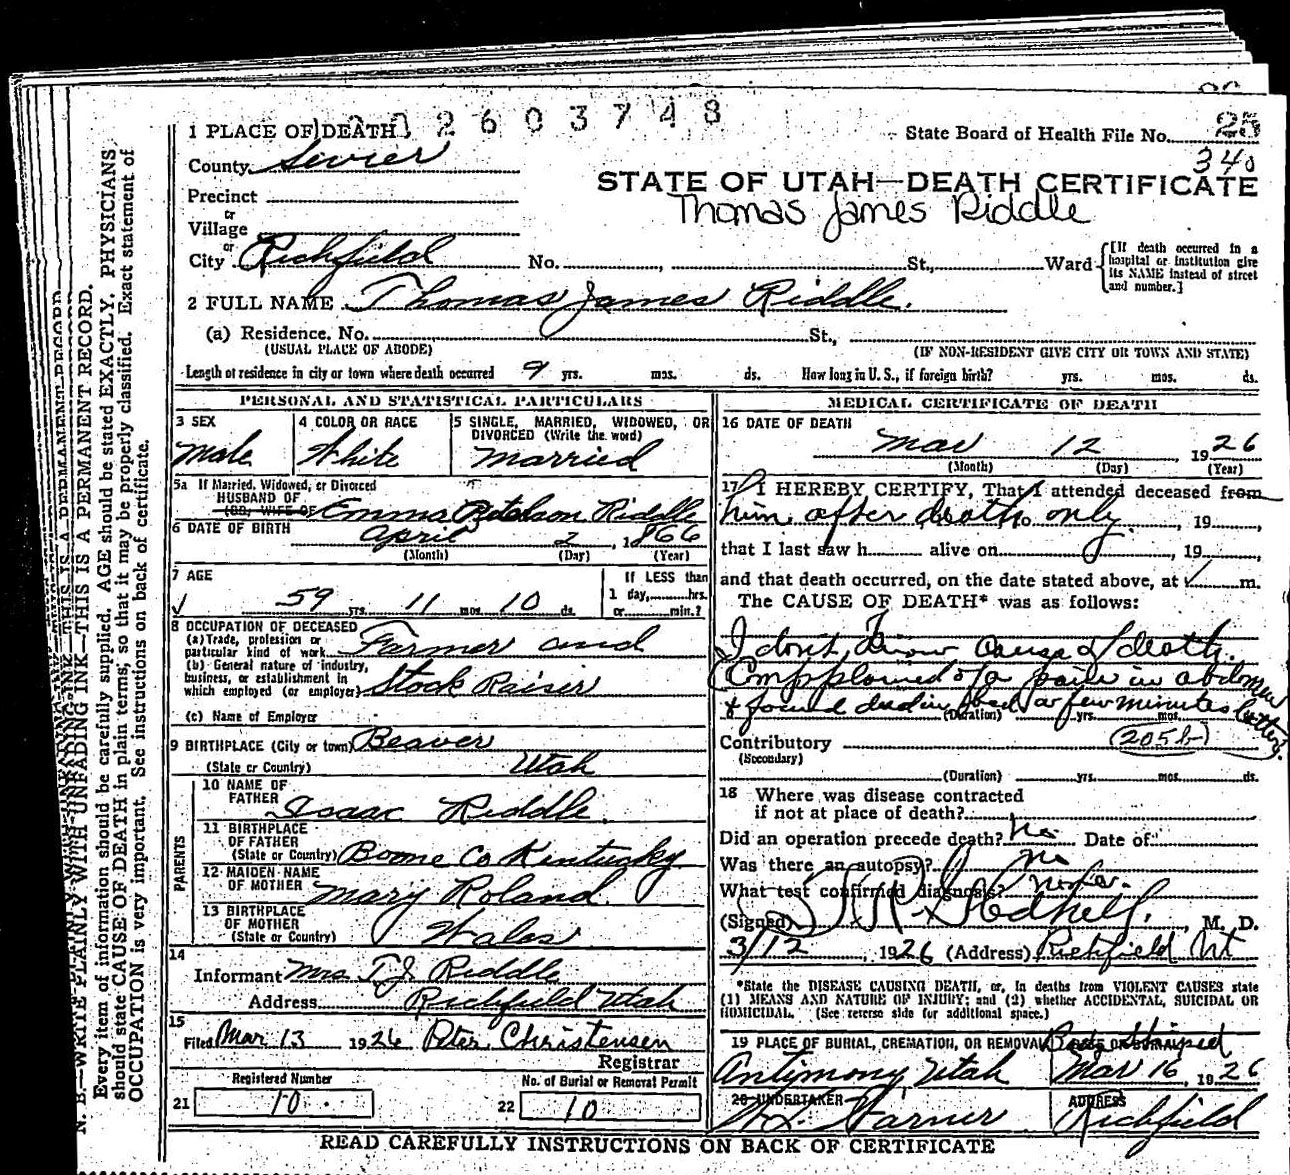 2603748
1 PLACE OF DEATH
State Board of Health File No. 25
340
County Sevier
STATE OF UTAH—DEATH CERTIFICATE
Thomas James Riddle
Precinct
or
Village
or
City Richfield No. , St., Ward
[If death occurred in a hospital or institution give its NAME instead of street and number.]
2 FULL NAME Thomas James Riddle.
(a) Residence. No. St.,
(USUAL PLACE OF ABODE) (IF NON-RESIDENT GIVE CITY OR TOWN AND STATE)
Length of residence in city or town where death occurred 9 yrs. mos. ds. How long in U. S., if foreign birth? yrs. mos. ds.
PERSONAL AND STATISTICAL PARTICULARS
3 SEX
Male
4 COLOR OR RACE
White
5 SINGLE, MARRIED, WIDOWED, OR DIVORCED (Write the word)
Married
5a If Married, Widowed, or Divorced
HUSBAND OF
(OR) WIFE OF Emma Peterson Riddle
6 DATE OF BIRTH April 2, 1866
(Month) (Day) (Year)
7 AGE
59 yrs. 11 mos. 10 ds.
If LESS than
1 day, hrs.
or min.?
8 OCCUPATION OF DECEASED
(a) Trade, profession or particular kind of work Farmer and
(b) General nature of industry, business, or establishment in which employed (or employer) Stock Raiser
(c) Name of Employer
9 BIRTHPLACE (City or town) Beaver
(State or Country) Utah
PARENTS
10 NAME OF FATHER Isaac Riddle.
11 BIRTHPLACE OF FATHER
(State or Country) Boone Co Kentucky
12 MAIDEN NAME OF MOTHER Mary Roland.
13 BIRTHPLACE OF MOTHER
(State or Country) Wales
14
Informant Mrs T.J. Riddle
Address Richfield Utah
15
Filed Mar 13 1926 Peter Christensen
Registrar
Registered Number
21 10
No. of Burial or Removal Permit
22 10
MEDICAL CERTIFICATE OF DEATH
16 DATE OF DEATH
Mar 12, 1926
(Month) (Day) (Year)
17 I HEREBY CERTIFY, That I attended deceased from
him after death only, 19 ,
that I last saw h alive on , 19 ,
and that death occurred, on the date stated above, at m.
The CAUSE OF DEATH* was as follows:
I don't know cause of death.
Compplained of a pain in abdomen
& found dead in bed a few minutes latter.
(Duration) yrs. mos.
Contributory (205b)
(Secondary)
(Duration) yrs. mos. ds.
18 Where was disease contracted
if not at place of death?
Did an operation precede death? No Date of
Was there an autopsy? no
What test confirmed diagnosis?
(Signed) , M. D.
3/12, 1926 (Address) Richfield Ut
*State the DISEASE CAUSING DEATH, or, in deaths from VIOLENT CAUSES state
(1) MEANS AND NATURE OF INJURY; and (2) whether ACCIDENTAL, SUICIDAL OR
HOMICIDAL. (See reverse side for additional space.)
19 PLACE OF BURIAL, CREMATION, OR REMOVAL
Antimony Utah
Mar 16, 1926
20 UNDERTAKER
ADDRESS
Richfield
READ CAREFULLY INSTRUCTIONS ON BACK OF CERTIFICATE
N. B.—WRITE PLAINLY WITH UNFADING INK—THIS IS A PERMANENT RECORD.
Every item of information should be carefully supplied. AGE should be stated EXACTLY. PHYSICIANS
should state CAUSE OF DEATH in plain terms, so that it may be properly classified. Exact statement of
OCCUPATION is very important. See instructions on back of certificate.